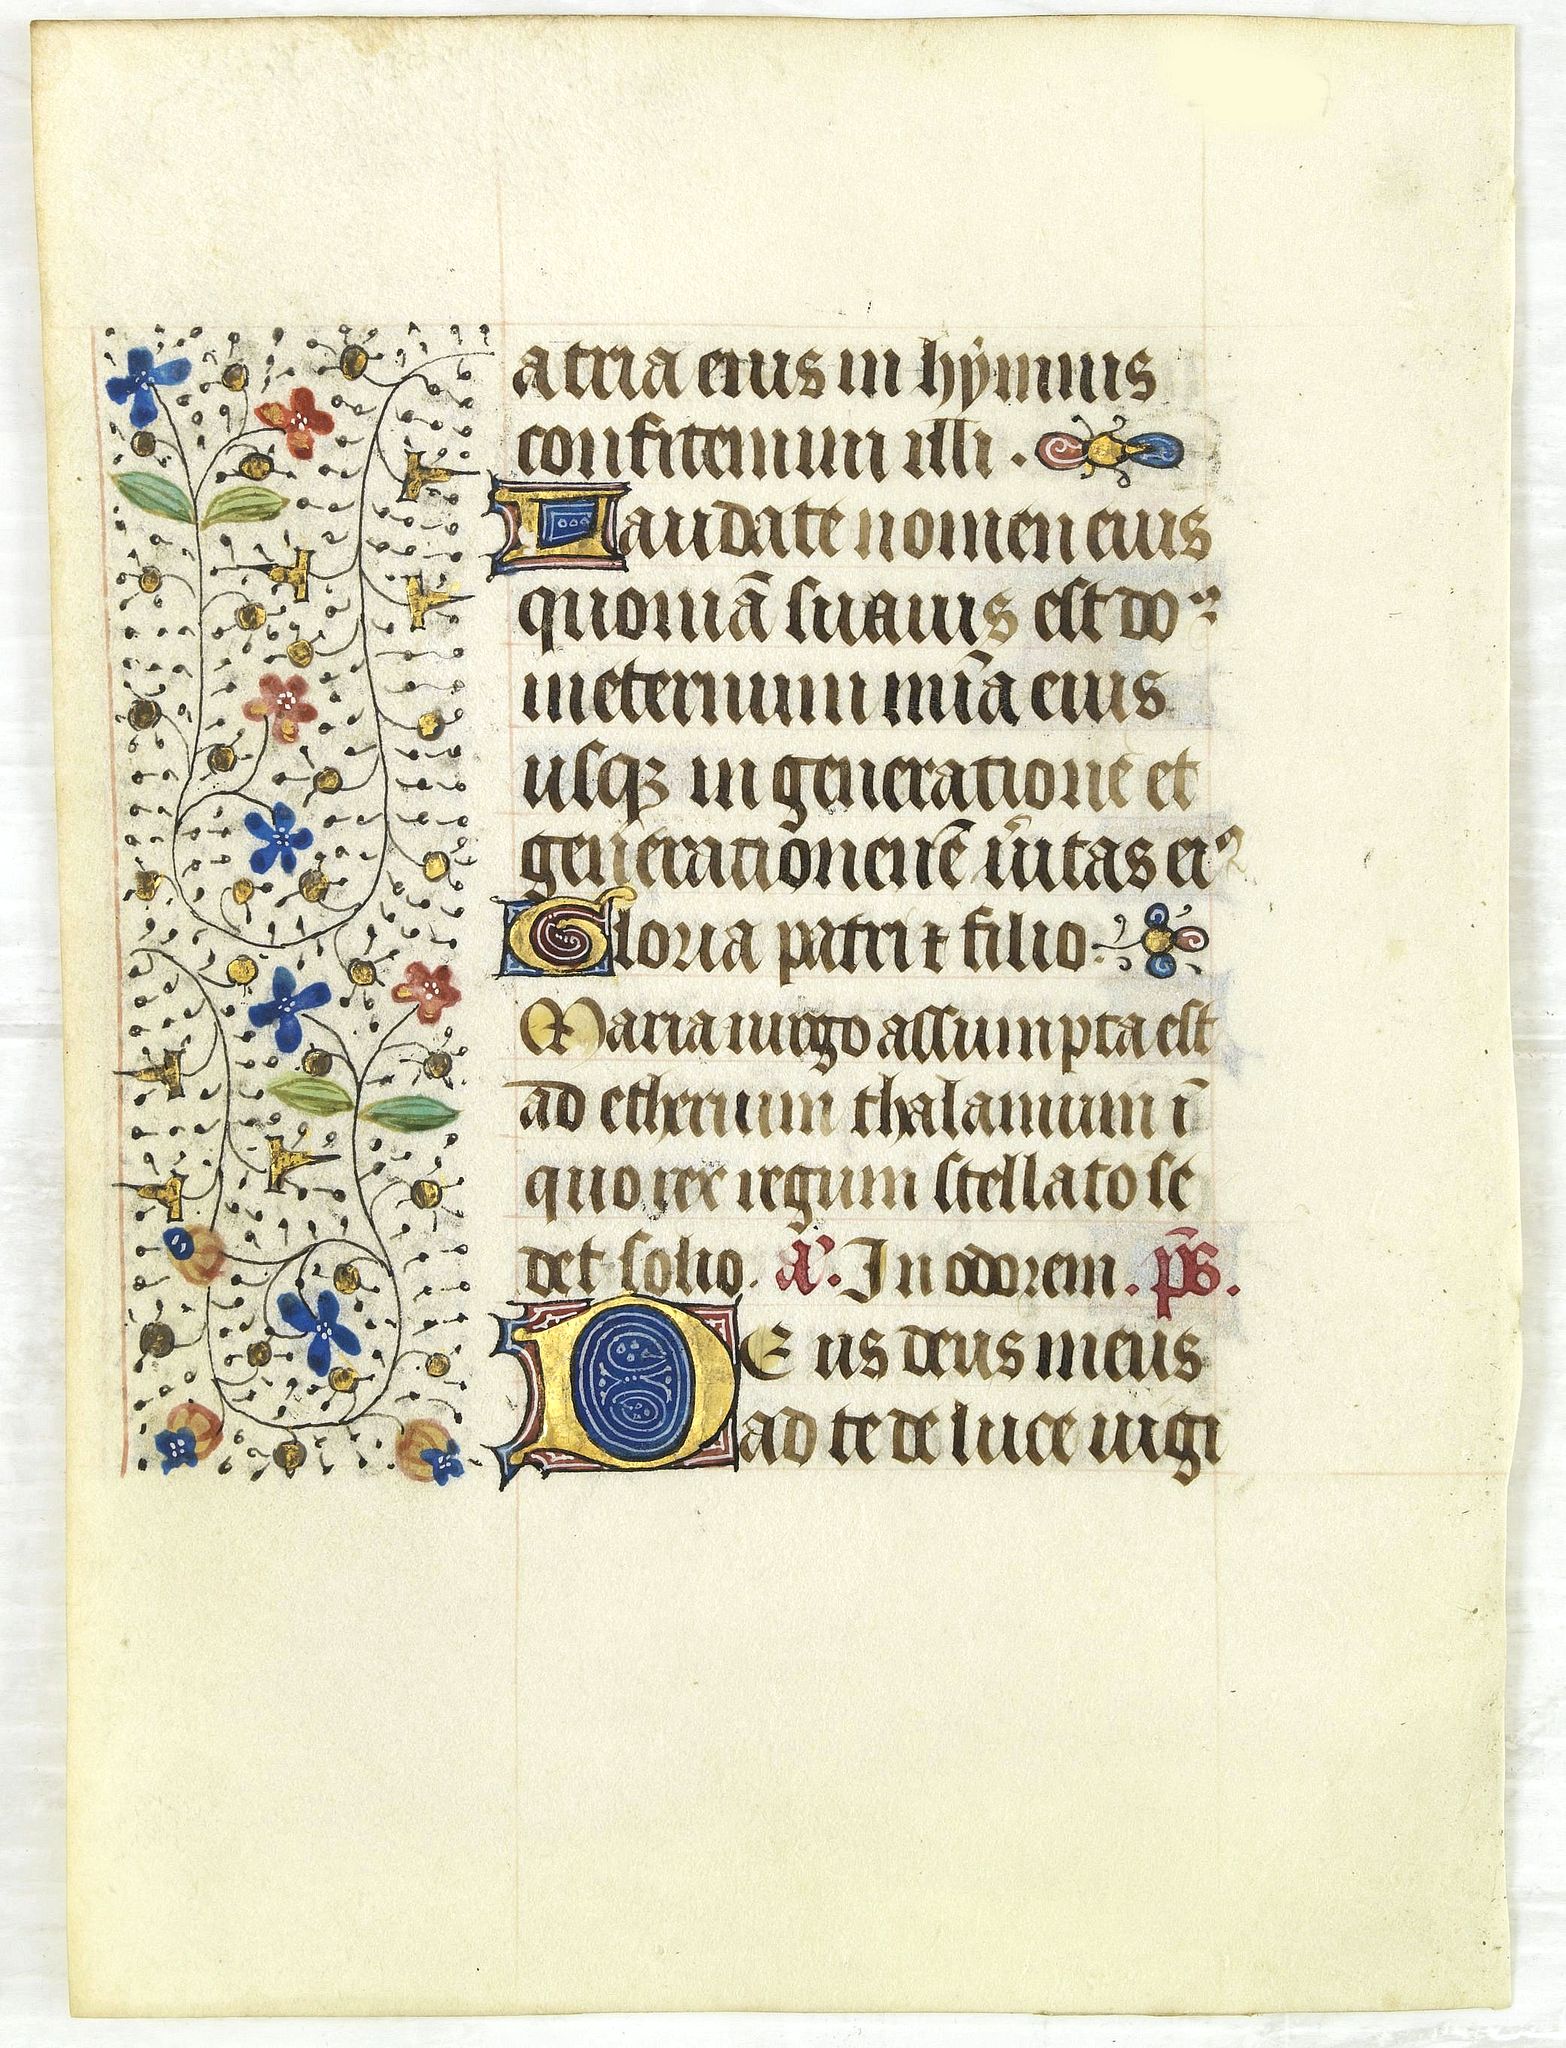 atria eius in hẏmnis
confitemini illi .
Laudate nomen eius
quoniā suauis est do⁹
in eternum mīa eius
usqꝫ in generatione et
generationenē u̾itas ei⁹
Gloria patri ⁊ filio
Maria uirgo assumpta est
ad etherium thalamum ī
quo rex regum stellato se
det solio. a̾. In odorem. p̄s.
DEus deus meus
ad te de luce uigi